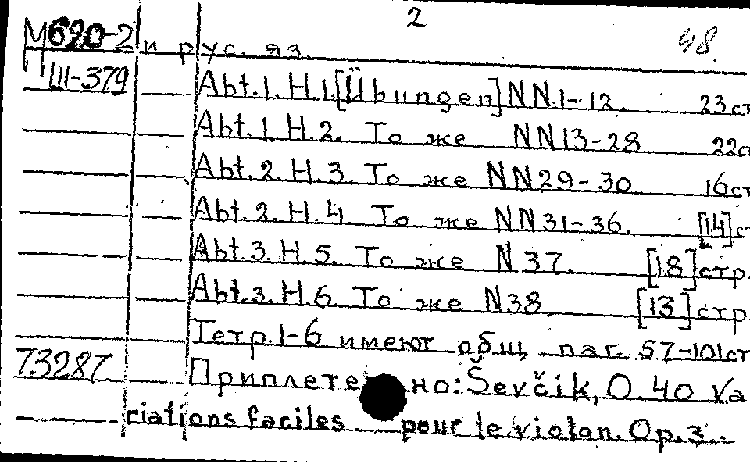 2
М620-2 и рус. яз. 48
П Ш-379 Abt.1.H.1.[Übungen]NN.1-12. 23ст
Abt.1.H.2. То же NN13-28 22ст
Abt.2.H.3. То же NN29-30 16ст
Abt.2.H.4. То же NN31-36. [14]ст
Abt.3.H.5. То же N37. [18]стр.
Abt.3.H.6. То же N38 [13]стр.
Тетр.1-6 имеют общ. паг. 57-101ст
73287 Приплетено: Ševčik, O. 40 Va
riations faciles pour le violon. Op.3.